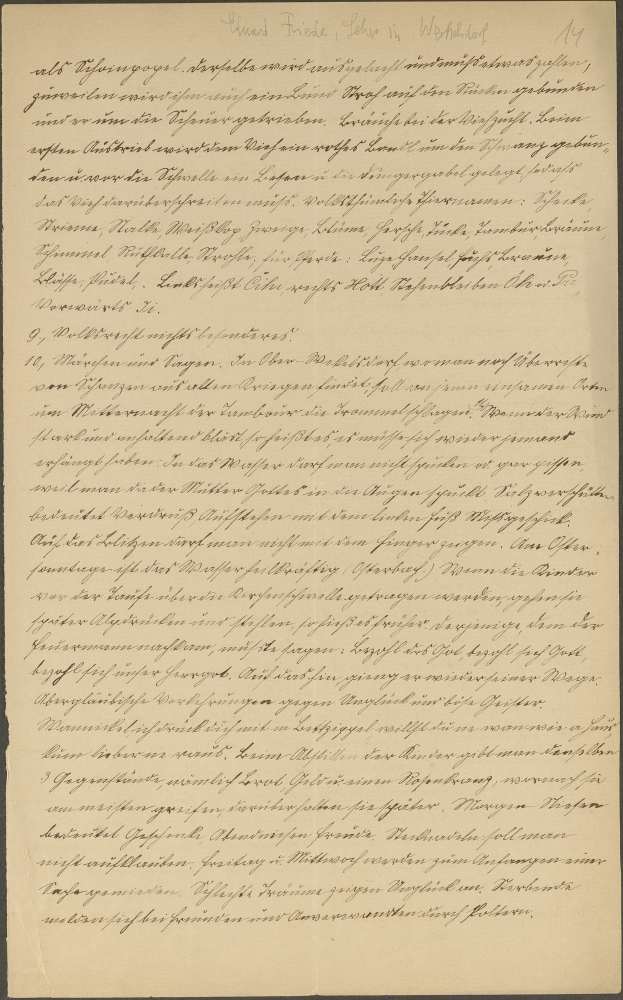 Eduard Friede, Lehrer in Wekelsdorf 14
als Scheunpopel. Derselbe wird ausgelacht und muß etwas zahlen,
zuweilen wird ihm auch ein Bund Stroh auf den Rücken gebunden
und er um die Scheuer getrieben. Bräuche bei der Viehzucht. Beim
ersten Austrieb wird dem Vieh ein rothes Bandl um den Schwanz gebun-
den u. vor die Schwelle ein Besen u. die Düngergabel gelegt, sodaß
das Vieh darüberschreiten muß. Volksthümliche Thiernamen: Schecke,
Strieme, Stalke, Weißkop, Zweige, Blüme, Hersche, Tambur, Braune,
Schimmel, für Pferde: Hansel, Fuchs, Braune,
Blässe, Pudel. Links heißt rechts Hott Stehenbleiben
Vorwärts Ji.
9., Volksrecht nichts besonderes.
10, Märchen und Sagen. In Ober-Wekelsdorf wo man noch Überreste
von Schanzen aus alten Kriegen findet, soll an jenen einsamen Orten
um Mitternacht der Tambour die Trommel schlagen. Wenn der Wind
stark und anhaltend bläst, so heißt es es müsse sich wieder jemand
erhängt haben. In das Wasser darf man nicht spucken od. gar pissen,
weil man da der Mutter Gottes in die Augen spuckt. Salz verschütten
bedeutet Verdruß, Aufstehen mit dem linken Fuß Mißgeschick.
Auf das Blitzen darf man nicht mit dem Finger zeigen. Am Oster-
sonntage ist das Wasser heilkräftig (Osterbach.) Wenn die Kinder
vor der Taufe über die Kirchenschwelle getragen werden, gehen sie
später Alpdrücken und stehlen, so hieß es früher. Derjenige, dem der
Feuermann nachkam, mußte sagen: Bezohl dos Got, bezohl sich Gott,
bezohl sich unser Herrgot. Auf das hin gieng er wieder seiner Wege.
Abergläubische Vorkehrungen gegen Unglück und böse Geister.
ich drück dich mit
kum lieber ne raus. Beim Abstillen der Kinder gibt man denselben
3 Gegenstände, nämlich Brot, Geld u. einen Rosenkranz; wornach sie
am meisten greifen, darüber halten sie später. Morgen-Niesen
bedeutet Geschenke, Abendniesen Freude. Stecknadeln soll man
nicht aufklauben. Freitag u. Mittwoch werden zum Anfangen einer
Sache gemieden. Schlechte Träume zeigen Unglück an. Sterbende
melden sich bei Freunden und Anverwandten durch Poltern.